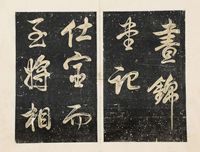 晝錦
堂記
仕宦而
至將相